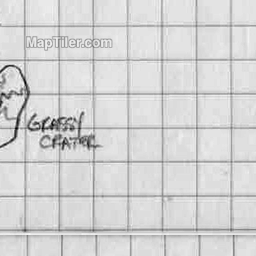 MapTiler.com
GRASSY
CRATER